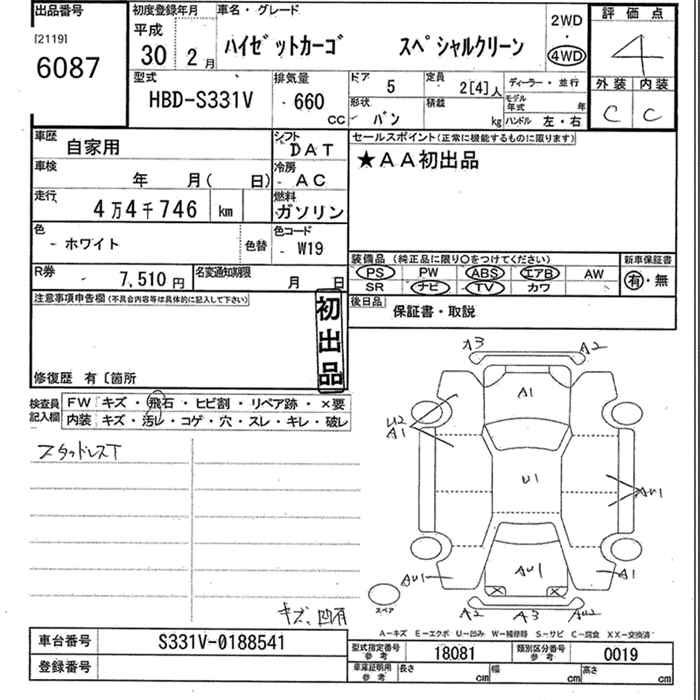 出品番号 初度登録年月 車名・グレード 評価点
[2119] 平成 2WD
6087 30年 2月 ハイゼットカーゴ スペシャルクリーン ・ 4WD 4
型式 排気量 ドア 5 定員 2[4]人 ディーラー・並行 外装 内装
HBD-S331V 660 cc 形状 バン 積載 kg モデル年式 年 ハンドル 左・右 C C
車歴 自家用 シフト DAT セールスポイント(正常に機能するものに限ります)
車検 年 月( 日) 冷房 AC ★AA初出品
走行 4万4千746 km 燃料 ガソリン
色 ホワイト 色替 色コード W19
装備品 (純正品に限り○をつけてください) 新車保証書
R券 7,510円 名変通知期限 月 日 PS PW ABS エアB AW 有・無
SR ナビ TV カワ
注意事項申告欄(不具合内容等は具体的に記入して下さい) 初出品 後日品 保証書・取説
修復歴 有〔箇所
検査員記入欄 FW キズ・飛石・ヒビ割・リペア跡・×要
内装 キズ・汚レ・コゲ・穴・スレ・キレ・破レ
スタッドレスT
キズ、凹有
A3 A2
A1
U2
A1
U1
AU1
AU1 AU1 A1
スペア A2 A3 AU2
A-キズ E-エクボ U-凹み W-補修跡 S-サビ C-腐食 XX-交換済
車台番号 S331V-0188541 型式指定番号 参考 18081 類別区分番号 参考 0019
登録番号 車庫証明用 参考 長さ cm 幅 cm 高さ cm